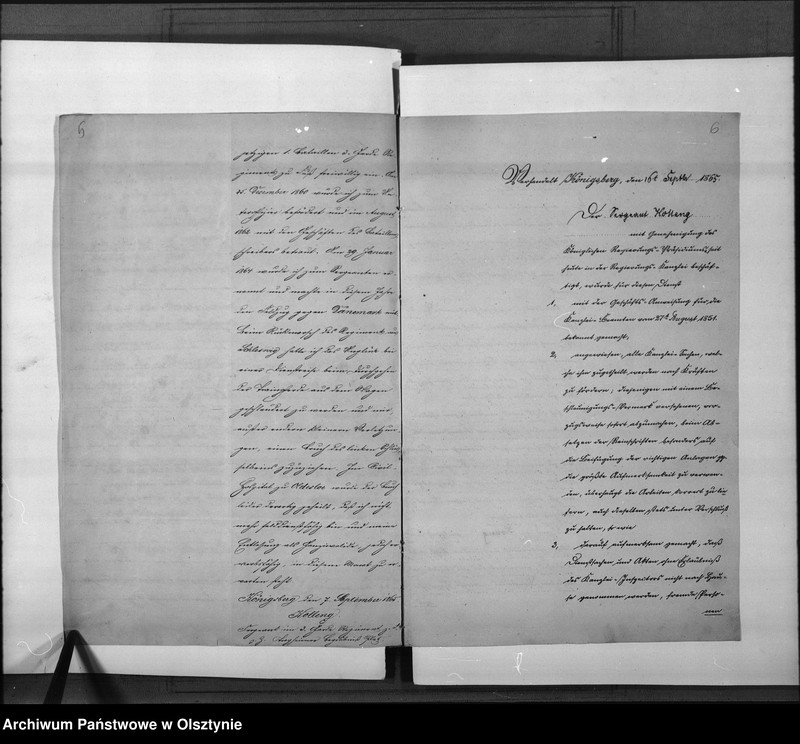 5
jetzigen 1. Bataillon d. Garde Re-
giments zu Fuß freiwillig ein. Am
25. Dezember 1860 wurde ich zum Un-
teroffizier befördert und im August
1862 mit den Geschäften des Bataillons
schreibers betraut. Am 29 Januar
1864 wurde ich zum Sergeanten er-
nannt und machte in diesem Jahre
den Feldzug gegen Dänemark mit.
Beim Rückmarsch des Regiments in
Schleswig hatte ich das Unglück bei
einer Dienstreise beim Durchgehen
der Trainpferde aus dem Wagen
geschleudert zu werden und mir,
außer andern kleinern Verletzun-
gen, einen Bruch des linken Schlüs-
selbeins zuzuziehen. Im
Lazareth zu wurde der Bruch
leider derartig geheilt, daß ich nicht
mehr felddienstfähig bin und meine
Entlassung als Ganzinvalide,
, in diesem Monat zu er-
warten steht.
Königsberg den 7. September 1865
Kolleng
Sergeant im 3. Garde Regiment z. F.
6
Verhandelt Königsberg, den 16t Septbr 1865.
Der Sergeant Kolleng
mit Genehmigung des
Königlichen Regierungs-Präsidiums seit
heute in der Regierungs-Kanzlei beschäf-
tigt, wurde für diesen Dienst
1, mit der Geschäfts-Anweisung für die
Kanzlei-Beamten vom 27t August 1851
bekannt gemacht;
2, angewiesen, alle Kanzlei-Sachen, wel-
che ihm zugetheilt werden nach Kräften
zu fördern; diejenigen mit einem Be-
schleunigungs-Vermerk versehenen, vor-
zugsweise sofort abzumachen, beim Ab-
setzen der Reinschriften besonders auf
die Beifügung der richtigen Anlagen pp
die größte Aufmerksamkeit zu verwen-
den, überhaupt die Arbeiten korrect zu lie-
fern, auch dieselben stets unter Verschluß
zu halten, so wie
3, darauf aufmerksam gemacht, daß
Dienstsachen und Akten ohne Erlaubniß
des Kanzlei-Inspektors nicht nach Hau-
se genommen werden, fremde Perso-
nen
Archiwum Państwowe w Olsztynie